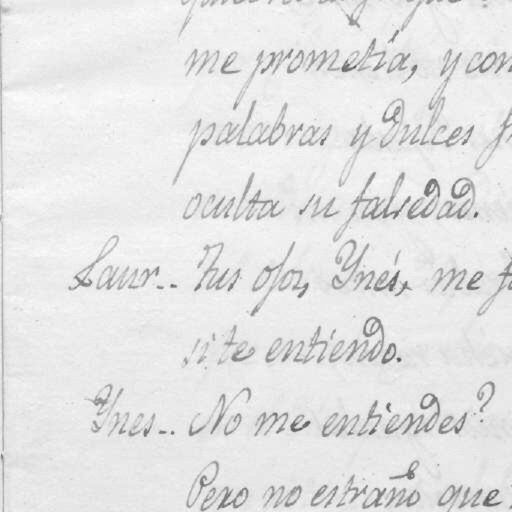 me prometía, y con
palabras y dulces
oculta su falsedad.
Laur.. Tus ojos, Ynés, me
si te entiendo.
Ynes.. No me entiendes?
Pero no estraño que